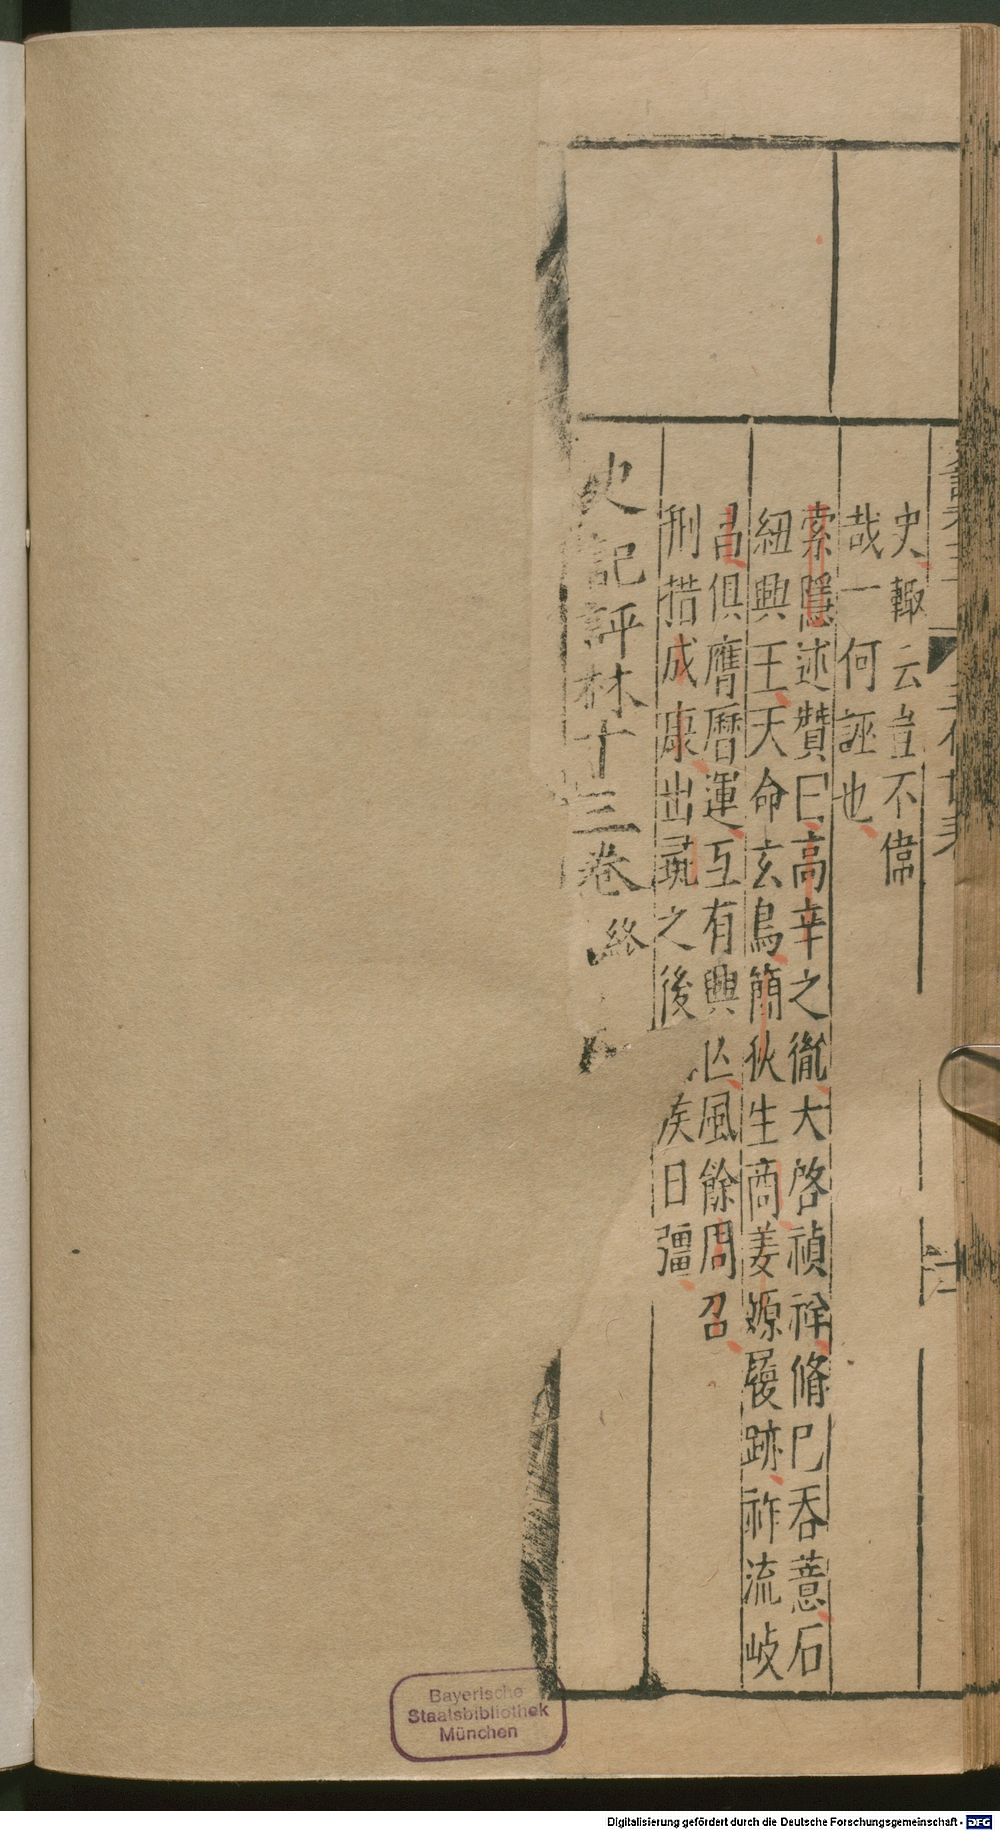 史輙云豈不偉
哉一何誣也
索隱述贊曰高辛之胤大啓禎祥脩巳吞薏石
紐興王天命玄鳥簡狄生商姜嫄履跡祚流岐
昌俱膺曆運互有興亾風餘周召
刑措成康出彘之後 矦日彊
史記評林十三卷 終
Bayerische
Staatsbibliothek
München
Digitalisierung gefördert durch die Deutsche Forschungsgemeinschaft - DFG